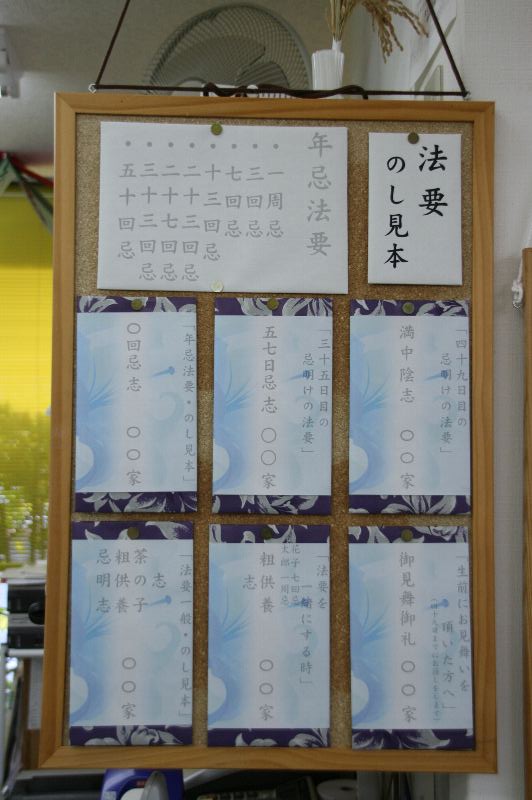 法要
のし見本
年忌法要
・一周忌
・三回忌
・七回忌
・十三回忌
・二十三回忌
・二十七回忌
・三十三回忌
・五十回忌
「四十九日目の
忌明けの法要」
満中陰志 〇〇家
「三十五日目の
忌明けの法要」
五七日忌志 〇〇家
「年忌法要・のし見本」
〇回忌志 〇〇家
「生前にお見舞いを
頂いた方へ」
(四十九日までにお返しをします)
御見舞御礼 〇〇家
「法要を
一緒にする時」
花子七回忌
太郎一周忌
粗供養 〇〇家
志
「法要一般・のし見本」
志
茶の子
粗供養 〇〇家
忌明志